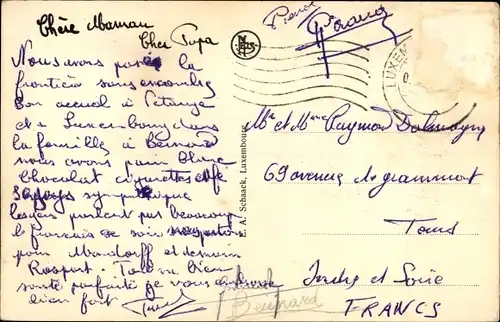 Chère Maman
Cher Papa
Nous avons passé la
frontière sans encombre
bon accueil à Pétange
et à Luxembourg dans
la famille à Bernard
nous avons pain blanc
chocolat cigarettes café
pays sympathique
les gens parlent pas beaucoup
le français ce soir
pour Mondorff et demain
Rosport. Tout va bien
santé parfaite je vous embrasse
bien fort
Bernard
Pierre
E. A. Schaack, Luxembourg
LUXEM
Mr et Mme Raymond
69 avenue de grammont
Tours
Indre et Loire
FRANCE